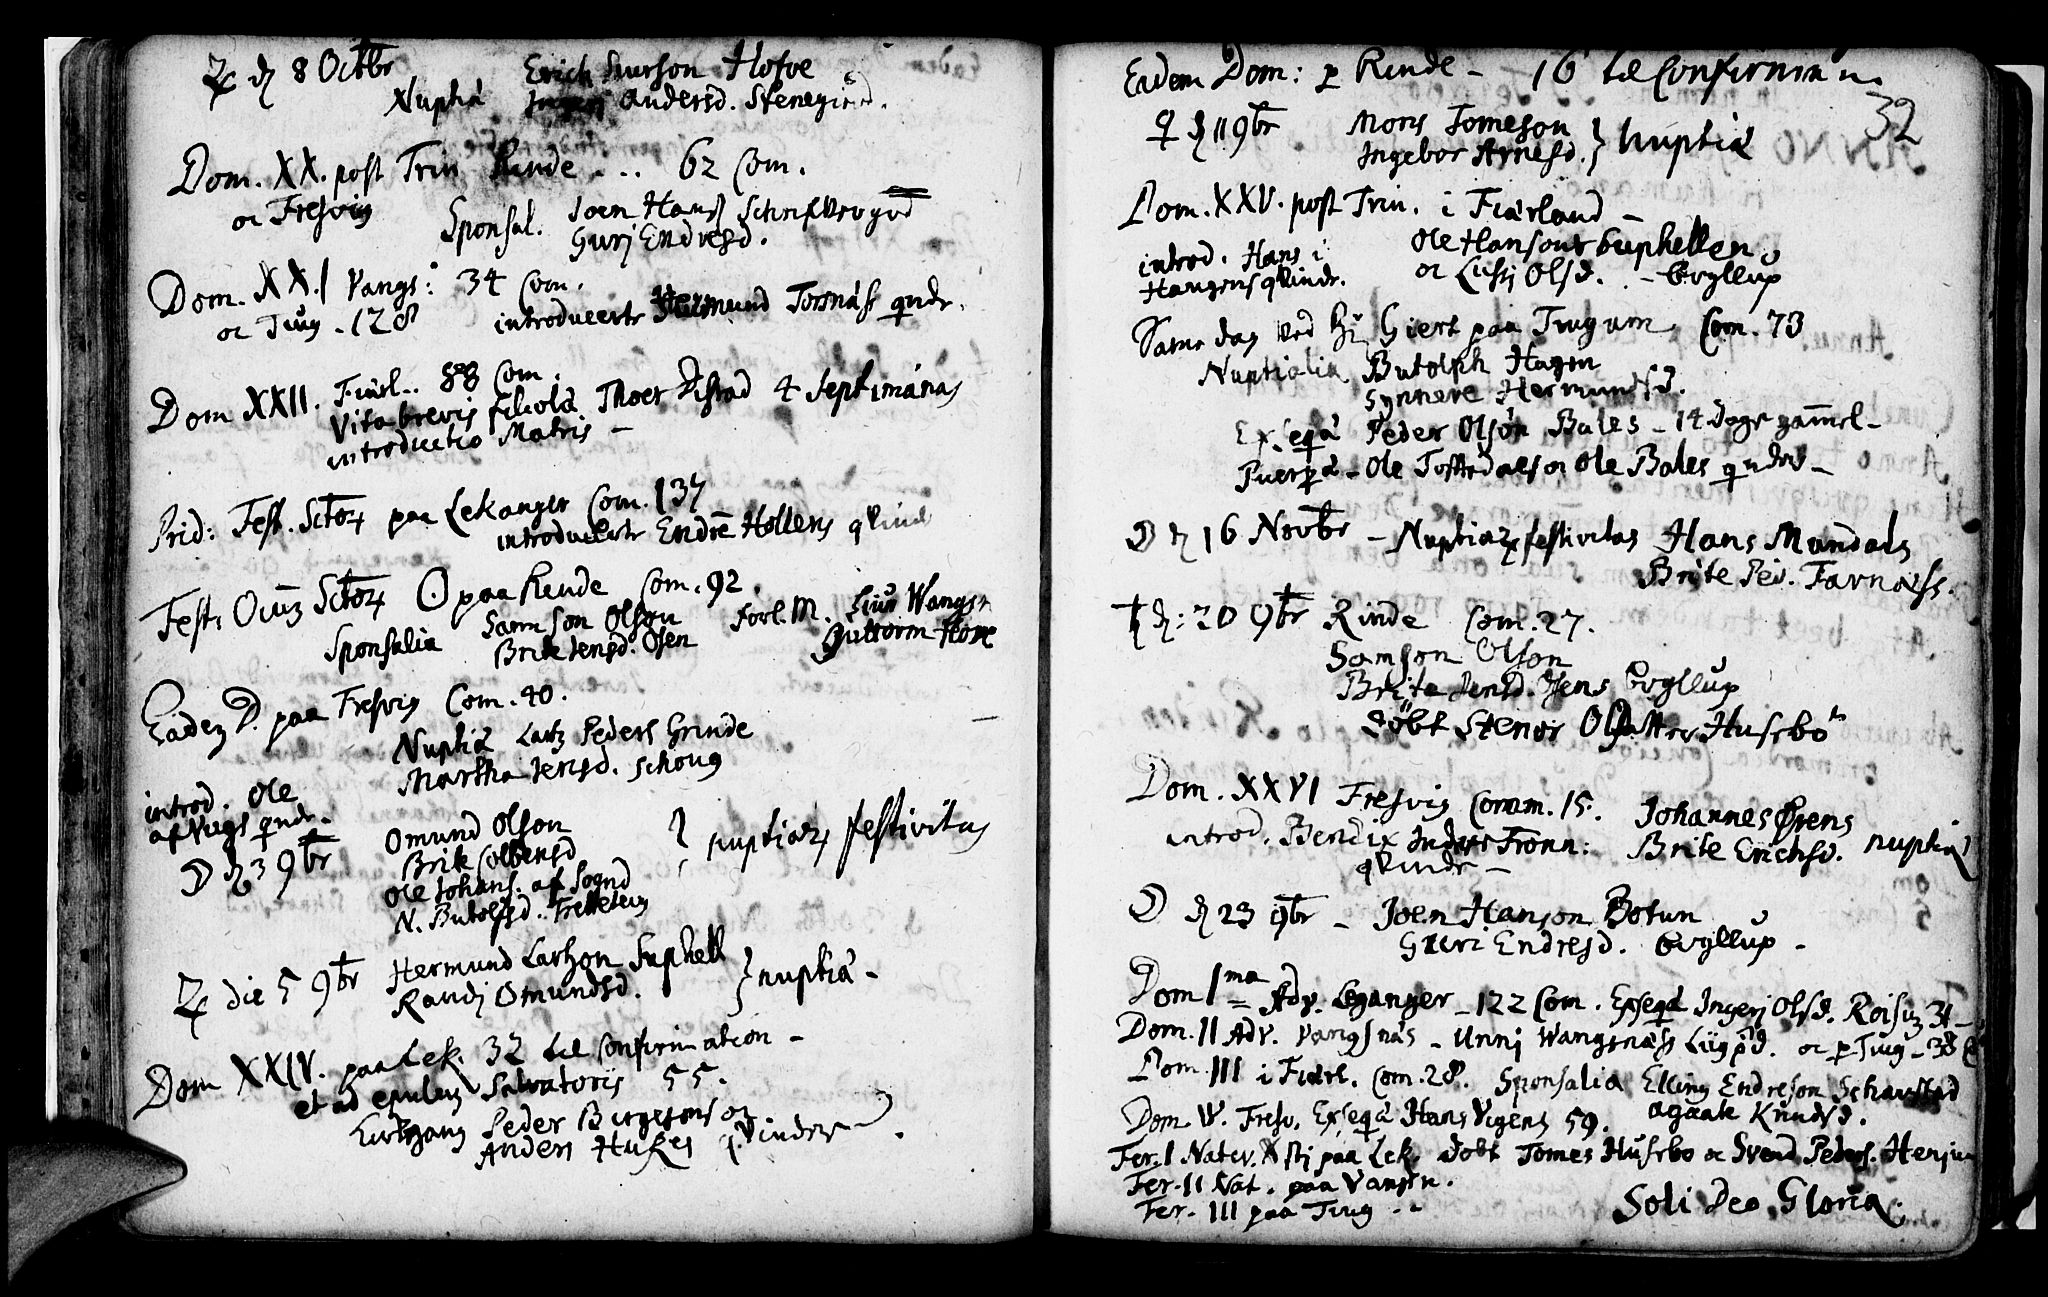 ♃ d 8 Octbr Erich Siurson Hofve
Nuptiæ Andersd. Stenegierd.
Dom. XX. post Trin Rinde ... 62 Com.
oc Fresvig
Sponsal. Joen Hanss Schriftvergrd
Gurj Endresd.
Dom. XXI Vangs: 34 Com.
oc Tiug - 128 introducerte Hermund Tornæss qvndr.
Dom XXII. Fiærl.. 88 Com.
Vita brevis filiola Thoer Distad 4 Septimánas
introductio Matris -
Prid: Fest. Sctor paa Lekanger Com. 137
introducerte Endre Hollens qvind
Fest. Oium Sctor ☉ paa Rinde Com. 92.
Sponsalia Samson Olson Forl. M. Siur Wangsn
Brite Jensd. Osen Guttorm Hove
Eadem D. paa Fresvig Com. 40.
Nuptiæ Lars Peders Grinde
Martha Jensd. Schoug
introd. Ole
af Vigs qvndr.
☽ d 3 9br Omund Olson
Brite Colbensd } nuptiar festivitas
Ole Johans. af Sognd
N. Butolfsd. Frettein
♃ die 5 9br Hermund Larsson Suphell
Randj Omundsd. } nuptiæ -
Dom XXIV. paa Lek. 32 til Confirmation -
et ad epulum Salvatoris 55.
Kirkgang Peder Birgesons oc
Anders Hukes qvinder.
Eadem Dom: p Rinde - 16 til Confirman.
32
♀ d 11 9br Mons Tomeson
Ingebor Arnesd. } Nuptiæ
Dom. XXV. post Trin. i Fiærland -
introd. Hans i Ole Hansons Suphellen
Haugens qvinde. oc Lussj Olsd. - Bryllup
Same dag ved Hr Giert paa Tiugum. Com. 73
Nuptialia Butolph Hagen
Synneve Hermundsd.
Exseqæ Peder Olson Bales - 14 Dage gammel -
Puerpæ - Ole Toftedals oc Ole Bales qvnder -
☽ d 16 Novbr - Nuptiar festivitas Hans Mundals
Brite Ped. Farnæss.
♄ d: 20 9br Rinde Com. 27.
Samson Olson
Brite Jensd. Osens Bryllup
Döbt Stenor Olsdatter Husebö
Dom. XXVI Fresvig Comm. 15. Johannes Ørens
introd. Bendix Fronn: Brite Erichsd. nuptiæ
qvinde -
☽ d 23 9br - Joen Hanson Botun
Guri Endresd. Bryllup -
Dom 1ma Adv. Leganger - 122 Com. Exseqæ Ingerj Olsd. Roisum 31 -
Dom. II Adv. Vangsnæs - Unnj Wangsnæss Liig pd. oc p Tiug - 38
Dom. III i Fiærl. Com. 28. Sponsalia Elling Endreson Scharstad
Agaate Knudsd.
Dom. IV. Fresv. Exseqæ Hans Vigens 59.
Fer. I Nativ. Xsti paa Lek. Dobt Tomes Husebo oc Svend Peders. Henju
Fer. II Nat. paa Vangsn.
Fer. III paa Tiug - -
Soli Deo Gloria.